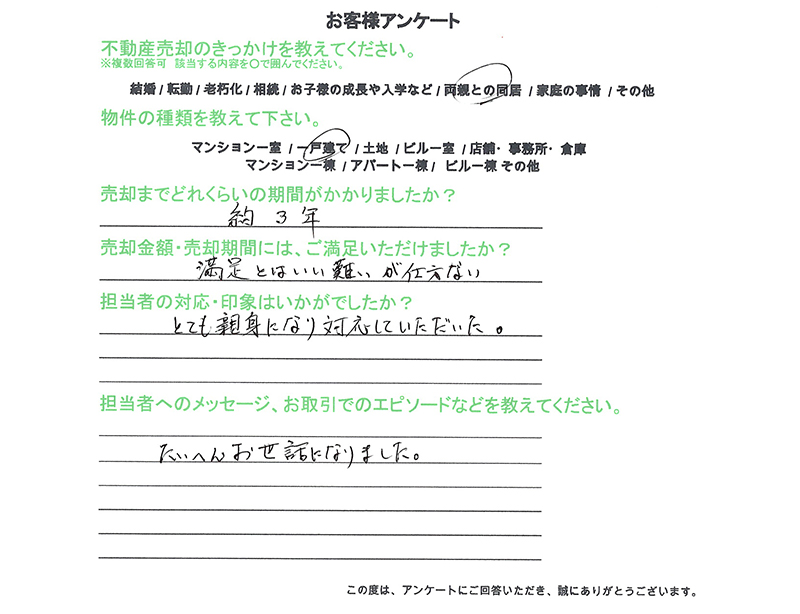 お客様アンケート
不動産売却のきっかけを教えてください。
※複数回答可 該当する内容を〇で囲んでください。
結婚 / 転勤 / 老朽化 / 相続 / お子様の成長や入学など / 両親との同居 / 家庭の事情 / その他
物件の種類を教えて下さい。
マンション一室 / 一戸建て / 土地 / ビル一室 / 店舗・事務所・倉庫
マンション一棟 / アパート一棟 / ビル一棟 その他
売却までどれくらいの期間がかかりましたか？
約3年
売却金額・売却期間には、ご満足いただけましたか？
満足とはいい難いが仕方ない
担当者の対応・印象はいかがでしたか？
とても親身になり対応していただいた。
担当者へのメッセージ、お取引でのエピソードなどを教えてください。
たいへんお世話になりました。
この度は、アンケートにご回答いただき、誠にありがとうございます。